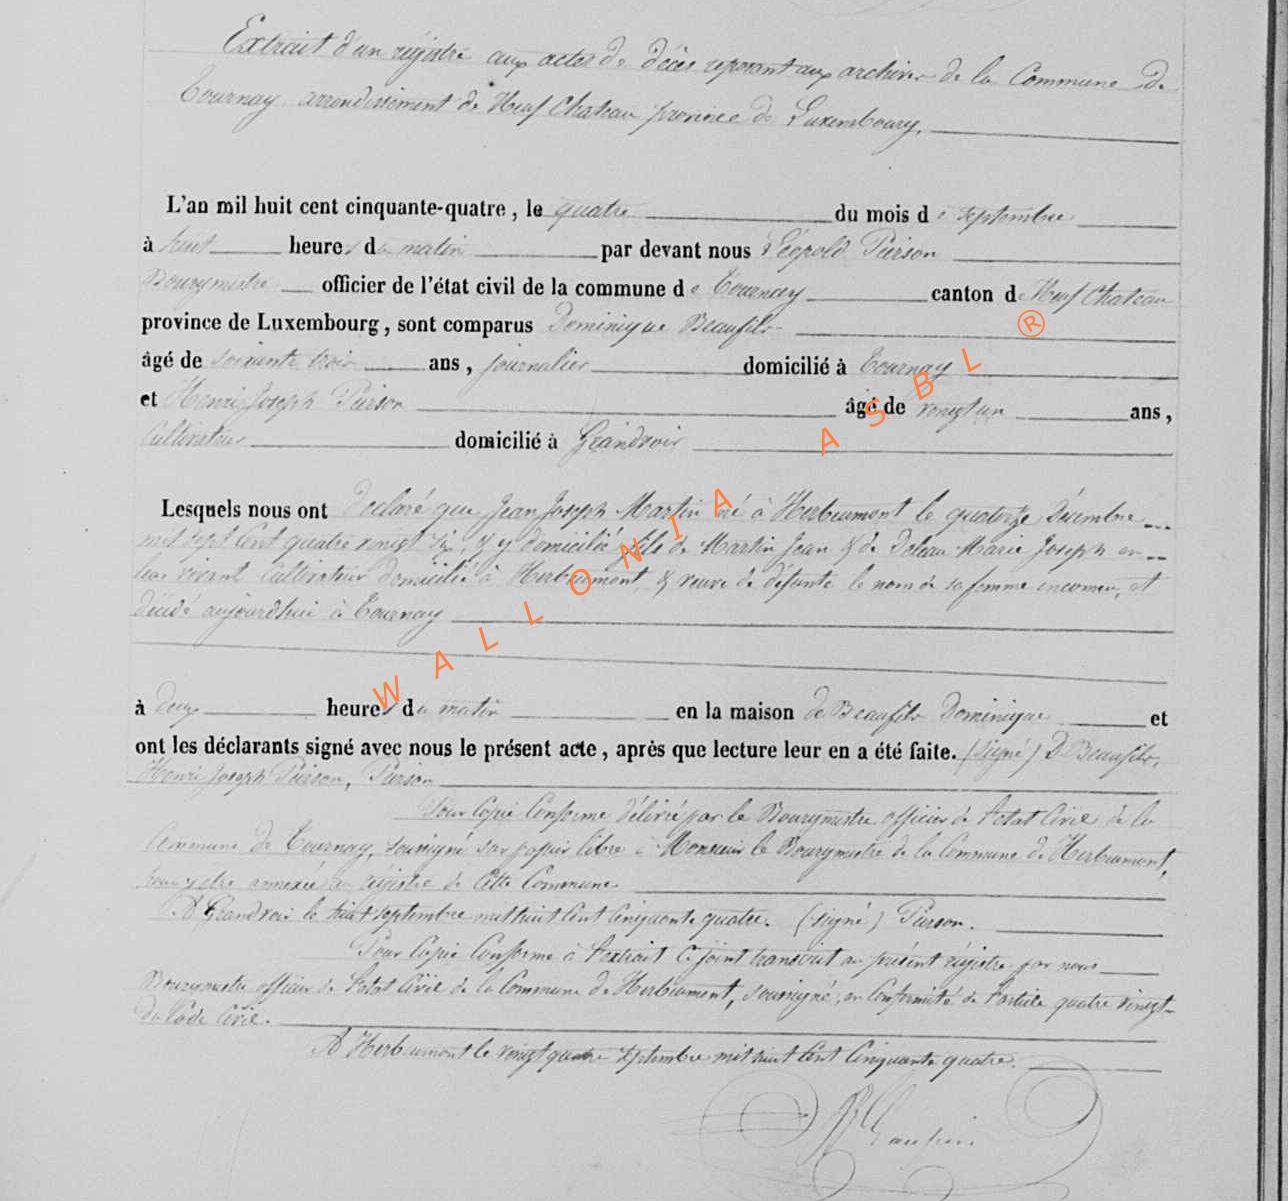 Extrait d'un régistre aux actes de décès reposant aux archives de la Commune de
Tournay arrondissement de Neufchateau province de Luxembourg.
L'an mil huit cent cinquante-quatre, le quatre du mois de septembre
à huit heures du matin par devant nous Léopold Pierson
Bourgmestre officier de l'état civil de la commune de Tournay canton de Neufchateau
province de Luxembourg, sont comparus Dominique Beaufils
âgé de soixante trois ans, journalier domicilié à Tournay
et Henri Joseph Pierson âgé de vingt un ans,
Cultivateur domicilié à Grandvoir
Lesquels nous ont déclaré que Jean Joseph Martin né à Herbeumont le quatorze Décembre
mil sept cent quatre vingt dix, & y domicilié, fils de Martin Jean & de Marie Joseph en
leur vivant Cultivateur domicilié à Herbeumont, & veuve de défunte le nom de sa femme inconnu, et
décédé aujourd'hui à Tournay
à deux heures du matin en la maison de Beaufils Dominique et
ont les déclarants signé avec nous le présent acte, après que lecture leur en a été faite. (signé) D Beaufils,
Henri Joseph Pierson, Pierson
Pour Copie Conforme délivré par le Bourgmestre officier de l'etat Civil de la
Commune de Tournay, soussigné sur papier libre à Monsieur le Bourgmestre de la Commune de Herbeumont,
pour y etre annexée au registre de cette Commune
A Grandvoir le huit septembre mil huit cent cinquante quatre. (signé) Pierson.
Pour Copie Conforme à l'extrait ci joint transcrit au présent régistre par nous
Bourgmestre officier de l'etat Civil de la Commune de Herbeumont, soussigné, en Conformité de l'article quatre vingt
du Code Civil.
A Herbeumont le vingt quatre septembre mil huit Cent Cinquante quatre.
WALLONIA ASBL ®